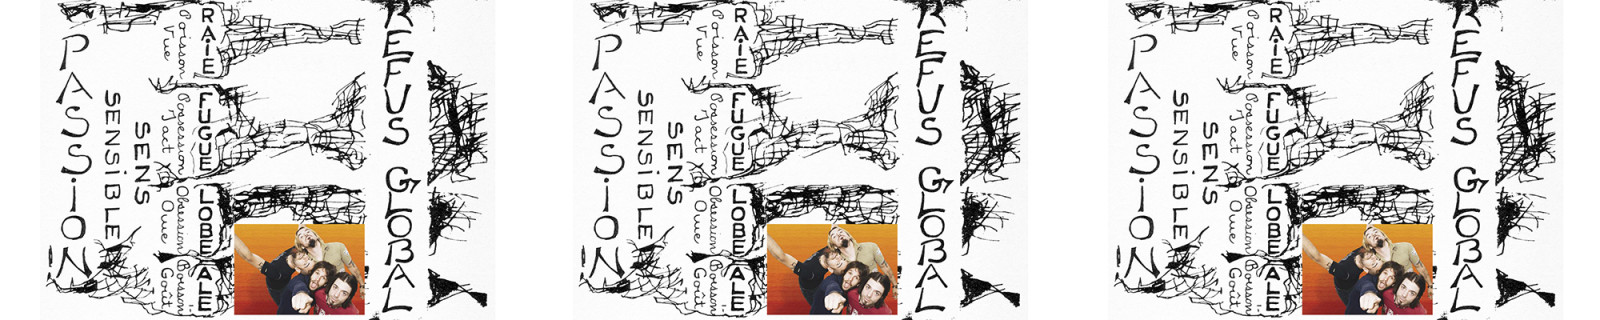 PASSiON
SENSiBLE
SENS
Poisson
Vue
RAiE
Possession
Tact
FUGUE
Obsession
Ouïe
LOBE
Boisson
Goût
ALE
REFUS GLOBAL
PASSiON
SENSiBLE
SENS
Poisson
Vue
RAiE
Possession
Tact
FUGUE
Obsession
Ouïe
LOBE
Boisson
Goût
ALE
REFUS GLOBAL
PASSiON
SENSiBLE
SENS
Poisson
Vue
RAiE
Possession
Tact
FUGUE
Obsession
Ouïe
LOBE
Boisson
Goût
ALE
REFUS GLOBAL